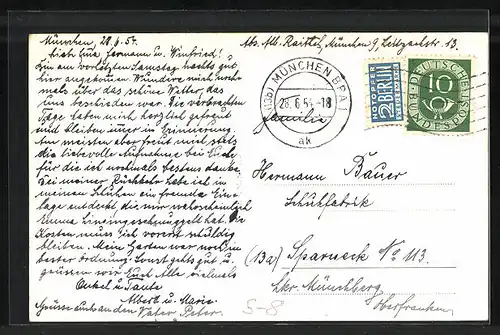 München, 28.6.54.
Lieb Tina Hermann u. Winfried!
Sind am vorletzten Samstag nachts gut
hier angekommen. Wundere mich noch-
mals über das schöne Wetter, das
uns beschieden war. Die verbrachten
Tage haben mich herzlich gefreut
und bleiben immer in Erinnerung.
Am meisten aber freut mich stets
die liebevolle Aufnahme bei Euch
für die ich nochmals bestens danke.
Bei meiner Rückkehr habe ich in
meinen Schuhen ein fremde Ein-
lage entdeckt die mir wahrscheinlich
Emma hat. Die
Kosten muss ich vorerst schuldig
bleiben. Mein Garten war noch in
bester Ordnung. Sonst gehts gut u.
grüssen wir Euch Alle vielmals
Onkel u. Tante
Albert u. Marie.
Grüsse auch an den Vater, Peter.
Abs. Alb. Raittel, München 9, 13.
(13b) MÜNCHEN BPA 1
28.6.54-18
ak
NOTOPFER
2 BERLIN
STEUERMARKE
DEUTSCHE BUNDESPOST
10
Familie
Hermann Bauer
Schuhfabrik
(13a) Sparneck No 113
Lkr. Münchberg
Oberfranken
S-8